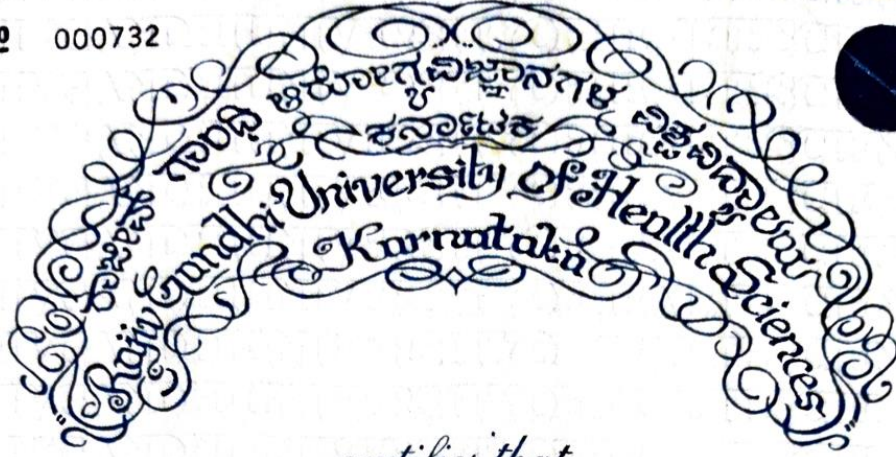 º 000732
ರಾಜೀವ್ ಗಾಂಧಿ ಆರೋಗ್ಯ ವಿಜ್ಞಾನಗಳ ವಿಶ್ವವಿದ್ಯಾಲಯ
ಕರ್ನಾಟಕ
Rajiv Gandhi University Of Health Sciences
Karnataka
certifies that